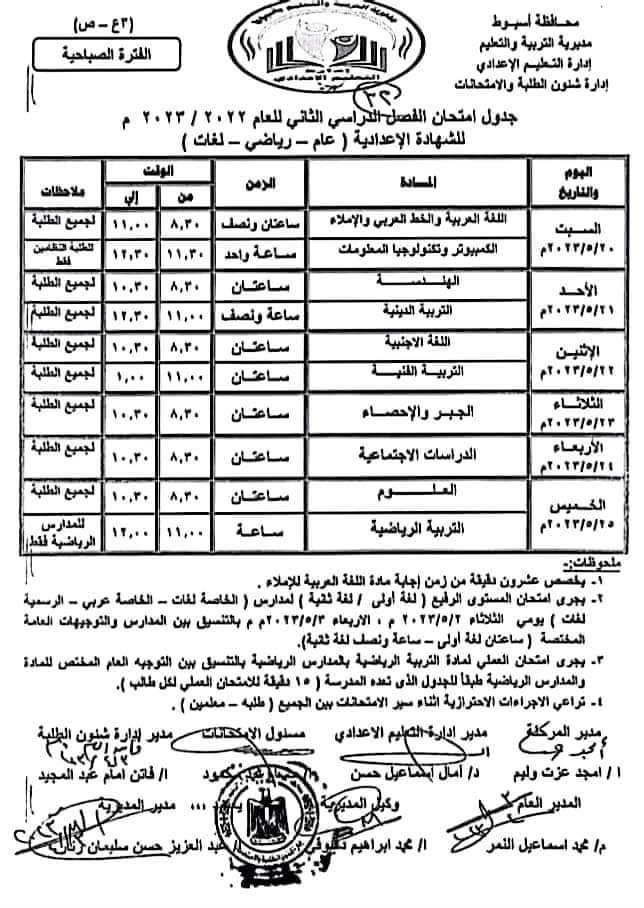 محافظة أسيوط
مديرية التربية والتعليم
إدارة التعليم الإعدادي
إدارة شئون الطلبة والامتحانات
(٣ع – ص)
الفترة الصباحية
جدول امتحان الفصل الدراسي الثاني للعام ٢٠٢٢ / ٢٠٢٣ م
للشهادة الإعدادية ( عام – رياضي – لغات )
اليوم والتاريخ المادة الزمن الوقت من إلى ملاحظات
السبت ٢٠٢٣/٥/٢٠م اللغة العربية والخط العربي والإملاء ساعتان ونصف ٨,٣٠ ١١,٠٠ لجميع الطلبة
الكمبيوتر وتكنولوجيا المعلومات ساعة واحد ١١,٣٠ ١٢,٣٠ للطلبة النظاميين فقط
الأحد ٢٠٢٣/٥/٢١م الهندسة ساعتان ٨,٣٠ ١٠,٣٠ لجميع الطلبة
التربية الدينية ساعة ونصف ١١,٠٠ ١٢,٣٠ لجميع الطلبة
الإثنين ٢٠٢٣/٥/٢٢م اللغة الاجنبية ساعتان ٨,٣٠ ١٠,٣٠ لجميع الطلبة
التربية الفنية ساعتان ١١,٠٠ ١,٠٠ لجميع الطلبة
الثلاثاء ٢٠٢٣/٥/٢٣م الجبر والإحصاء ساعتان ٨,٣٠ ١٠,٣٠ لجميع الطلبة
الأربعاء ٢٠٢٣/٥/٢٤م الدراسات الاجتماعية ساعتان ٨,٣٠ ١٠,٣٠ لجميع الطلبة
الخميس ٢٠٢٣/٥/٢٥م العلوم ساعتان ٨,٣٠ ١٠,٣٠ لجميع الطلبة
التربية الرياضية ساعة ١١,٠٠ ١٢,٠٠ للمدارس الرياضية فقط
ملحوظات:-
١- يخصص عشرون دقيقة من زمن إجابة مادة اللغة العربية للإملاء .
٢- يجرى امتحان المستوى الرفيع ( لغة أولى / لغة ثانية ) لمدارس ( الخاصة لغات – الخاصة عربي – الرسمية
لغات ) يومي الثلاثاء ٢٠٢٣/٥/٢ م ، الاربعاء ٢٠٢٣/٥/٣م م بالتنسيق بين المدارس والتوجيهات العامة
المختصة ( ساعتان لغة أولى – ساعة ونصف لغة ثانية).
٣- يجرى امتحان العملي لمادة التربية الرياضية بالمدارس الرياضية بالتنسيق بين التوجيه العام المختص للمادة
والمدارس الرياضية طبقاً للجدول الذى تعده المدرسة ( ١٥ دقيقة للامتحان العملي لكل طالب ).
٤- تراعي الاجراءات الاحترازية اثناء سير الامتحانات بين الجميع ( طلبه – معلمين ) .
مدير المرحلة مدير إدارة التعليم الاعدادي مسئول الامتحانات مدير إدارة شئون الطلبة
ا / امجد عزت وليم د/ أمال إسماعيل حسن ا/ فاتن امام عبد المجيد
المدير العام وكيل المديرية مدير المديرية
م/ محمد اسماعيل النمر ا/ محمد ابراهيم عبد العزيز حسن سليمان